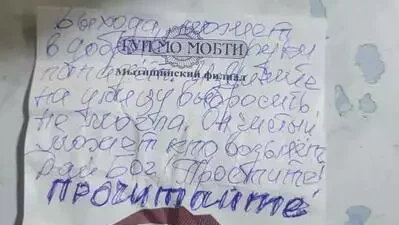 Выхода, может
в доб
ГУП МО МОБТИ
Мытищинский филиал
на улицу выбросить
не могла. Он чистый
может кто возьмет
Бог. Простите!
Прочитайте